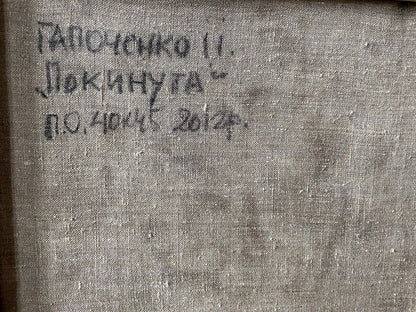 ГАПОЧЕНКО П.
„Покинута“
п.о. 40х45 2012р.